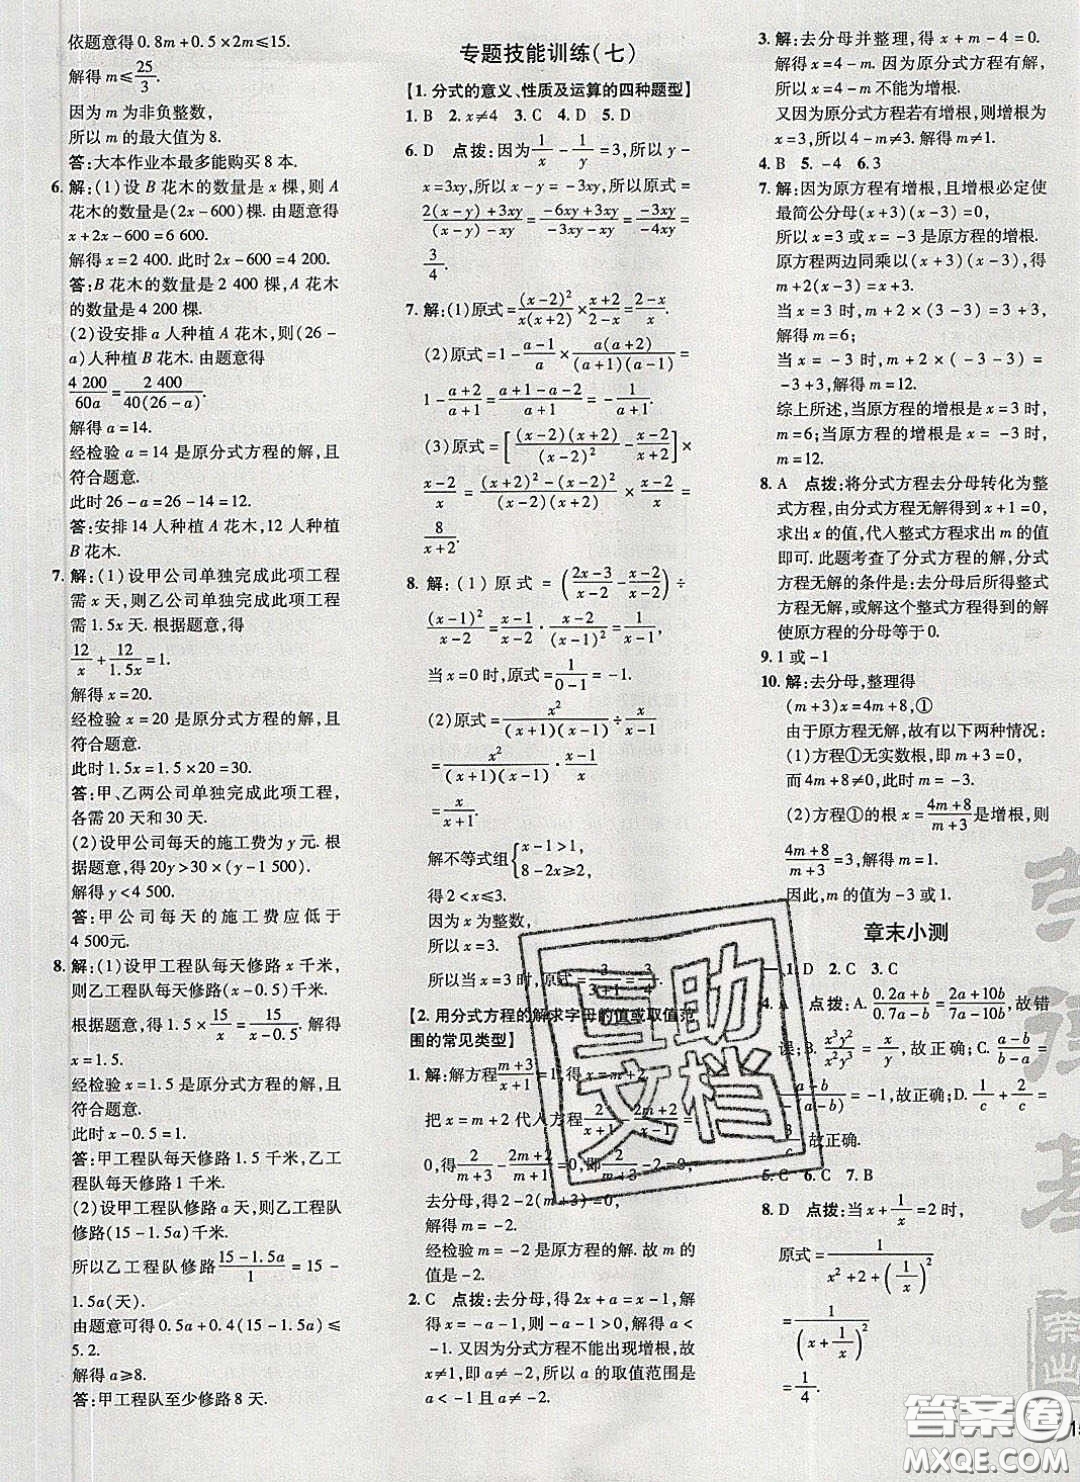 依题意得0.8m+0.5×2m≤15.
解得 m≤25/3.
因为 m 为非负整数,
所以 m 的最大值为 8.
答:大本作业本最多能购买 8 本.
6. 解:(1)设 B 花木的数量是 x 棵,则 A
花木的数量为(2x-600)棵. 由题意得
x+2x-600=6 600.
解得 x=2 400. 此时 2x-600=4 200.
答:B 花木的数量是 2 400 棵,A 花木
的数量为 4 200 棵.
(2)设安排 a 人种植 A 花木,则(26-
a)人种植 B 花木. 由题意得
4 200/60a=2 400/40(26-a).
解得 a=14.
经检验 a=14 是原分式方程的解,且
符合题意.
此时 26-a=26-14=12.
答:安排 14 人种植 A 花木,12 人种植
B 花木.
7. 解:(1)设甲公司单独完成此项工程
需 x 天,则乙公司单独完成此项工程
需 1.5x 天. 根据题意,得
12/x+12/1.5x=1.
解得 x=20.
经检验 x=20 是原分式方程的解,且
符合题意.
此时 1.5x=1.5×20=30.
答:甲、乙两公司单独完成此项工程,
各需 20 天和 30 天.
(2)设甲公司每天的施工费为 y 元. 根
据题意,得 20y>30×(y-1 500).
解得 y<4 500.
答:甲公司每天的施工费应低于
4 500元.
8. 解:(1)设甲工程队每天修路 x 千米,
则乙工程队每天修路(x-0.5)千米.
根据题意,得1.5×15/x=15/(x-0.5).解得
x=1.5.
经检验 x=1.5 是原分式方程的解,且
符合题意.
此时 x-0.5=1.
答:甲工程队每天修路1.5千米,乙工
程队每天修路1千米.
(2)设甲工程队修路 a 天,则乙工程队
修路(15-1.5a)千米.
所以乙工程队修路(15-1.5a)/1=15-
1.5a(天).
由题意可得0.5a+0.4(15-1.5a)≤
5.2.
解得 a≥8.
答:甲工程队至少修路 8 天.
专题技能训练(七)
【1. 分式的意义、性质及运算的四种题型】
1. B 2. x≠4 3. C 4. D 5. D
6. D 点拨:因为1/x-1/y=3,所以 y-
x=3xy,所以 x-y=-3xy,所以原式=
(2(x-y)+3xy)/((x-y)-xy)=(-6xy+3xy)/(-3xy-xy)=(-3xy)/(-4xy)=
3/4.
7. 解:(1)原式=(x-2)²/x(x+2)×(x+2)/(2-x)=(2-x)/x.
(2)原式=1-(a-1)/a×a(a+2)/(a+1)(a-1)=
1-(a+2)/(a+1)=(a+1-a-2)/(a+1)=-1/(a+1).
(3)原式=[(x-2)(x+2)/(x-2)²-(x-2)/(x+2)]×
(x-2)/x=(x+2)²-(x-2)²/(x-2)(x+2)×(x-2)/x=
8/(x+2).
8. 解:(1)原式=((2x-3)/(x-2)-(x-2)/(x-2))÷
(x-1)²/(x-2)=(x-1)/(x-2)·(x-2)/(x-1)²=1/(x-1),
当 x=0 时,原式=1/(0-1)=-1.
(2)原式=x²/(x+1)(x-1)÷x/(x-1)
=x²/(x+1)(x-1)×(x-1)/x
=x/(x+1).
解不等式组{x-1>1, 8-2x≥2,
得 2<x≤3.
因为 x 为整数,
所以 x=3.
所以当 x=3 时,原式=3/(3+1)=3/4.
【2. 用分式方程的解求字母的值或取值范
围的常见类型】
1. 解:解方程(m+3)/(x+1)=1,得
把 x=m+2 代入方程2/(x+1)-(m+2)/(x-1)=
0,得2/(m+3)-(2m+2)/(m+1)=0,即2/(m+3)-2=0,
去分母,得2-2(m+3)=0.
解得 m=-2.
经检验 m=-2 是原方程的解. 故 m 的
值是-2.
2. C 点拨:去分母,得 2x+a=x-1,解
得 x=-a-1,由-a-1>0,解得 a<
-1. 又因为分式方程不能出现增根,
所以 a≠-2,所以 a 的取值范围是
a<-1 且 a≠-2.
3. 解:去分母并整理,得 x+m-4=0.
解得 x=4-m. 因为原分式方程有解,
所以 x=4-m 不能为增根.
又因为原分式方程若有增根,则增根为
x=3,所以 4-m≠3. 解得 m≠1.
4. B 5. -4 6. 3
7. 解:因为原方程有增根,且增根必定使
最简公分母(x+3)(x-3)=0,
所以 x=3 或 x=-3 是原方程的增根.
原方程两边同乘以(x+3)(x-3),得
m+2(x-3)=x+3.
当 x=3 时,m+2×(3-3)=3+3,
解得 m=6;
当 x=-3 时,m+2×(-3-3)=
-3+3,解得 m=12.
综上所述,当原方程的增根是 x=3 时,
m=6;当原方程的增根是 x=-3 时,
m=12.
8. A 点拨:将分式方程去分母转化为整
式方程,由分式方程无解得到x+1=0,
求出 x 的值,代入整式方程求出 m 的值
即可. 此题考查了分式方程的解,分式
方程无解的条件是:去分母后所得整式
方程无解,或解这个整式方程得到的解
使原方程的分母等于0.
9. 1 或 -1
10. 解:去分母,整理得
(m+3)x=4m+8,①
由于原方程无解,故有以下两种情况:
(1)方程①无实数根,即 m+3=0,
而 4m+8≠0,此时 m=-3.
(2)方程①的根 x=(4m+8)/(m+3)是增根,则
(4m+8)/(m+3)=3,解得 m=1.
因此,m 的值为-3 或1.
章末小测
一、1. D 2. C 3. C
4. A 点拨:A. (0.2a+b)/(0.7a-b)=(2a+10b)/(7a-10b),故错
误;B. x³y²/x²y³=x/y,故正确;C. (a-b)/(b-a)=
-(a-b)/(a-b)=-1,故正确;D. 1/c+2/c=
3/c,故正确.
5. C 6. C 7. B
8. D 点拨:当x+1/x=2时,
原式=1/(x²+2+(1/x)²)
=1/(x+1/x)²
=1/4.
互助
文档
答案圈
MXQE.COM